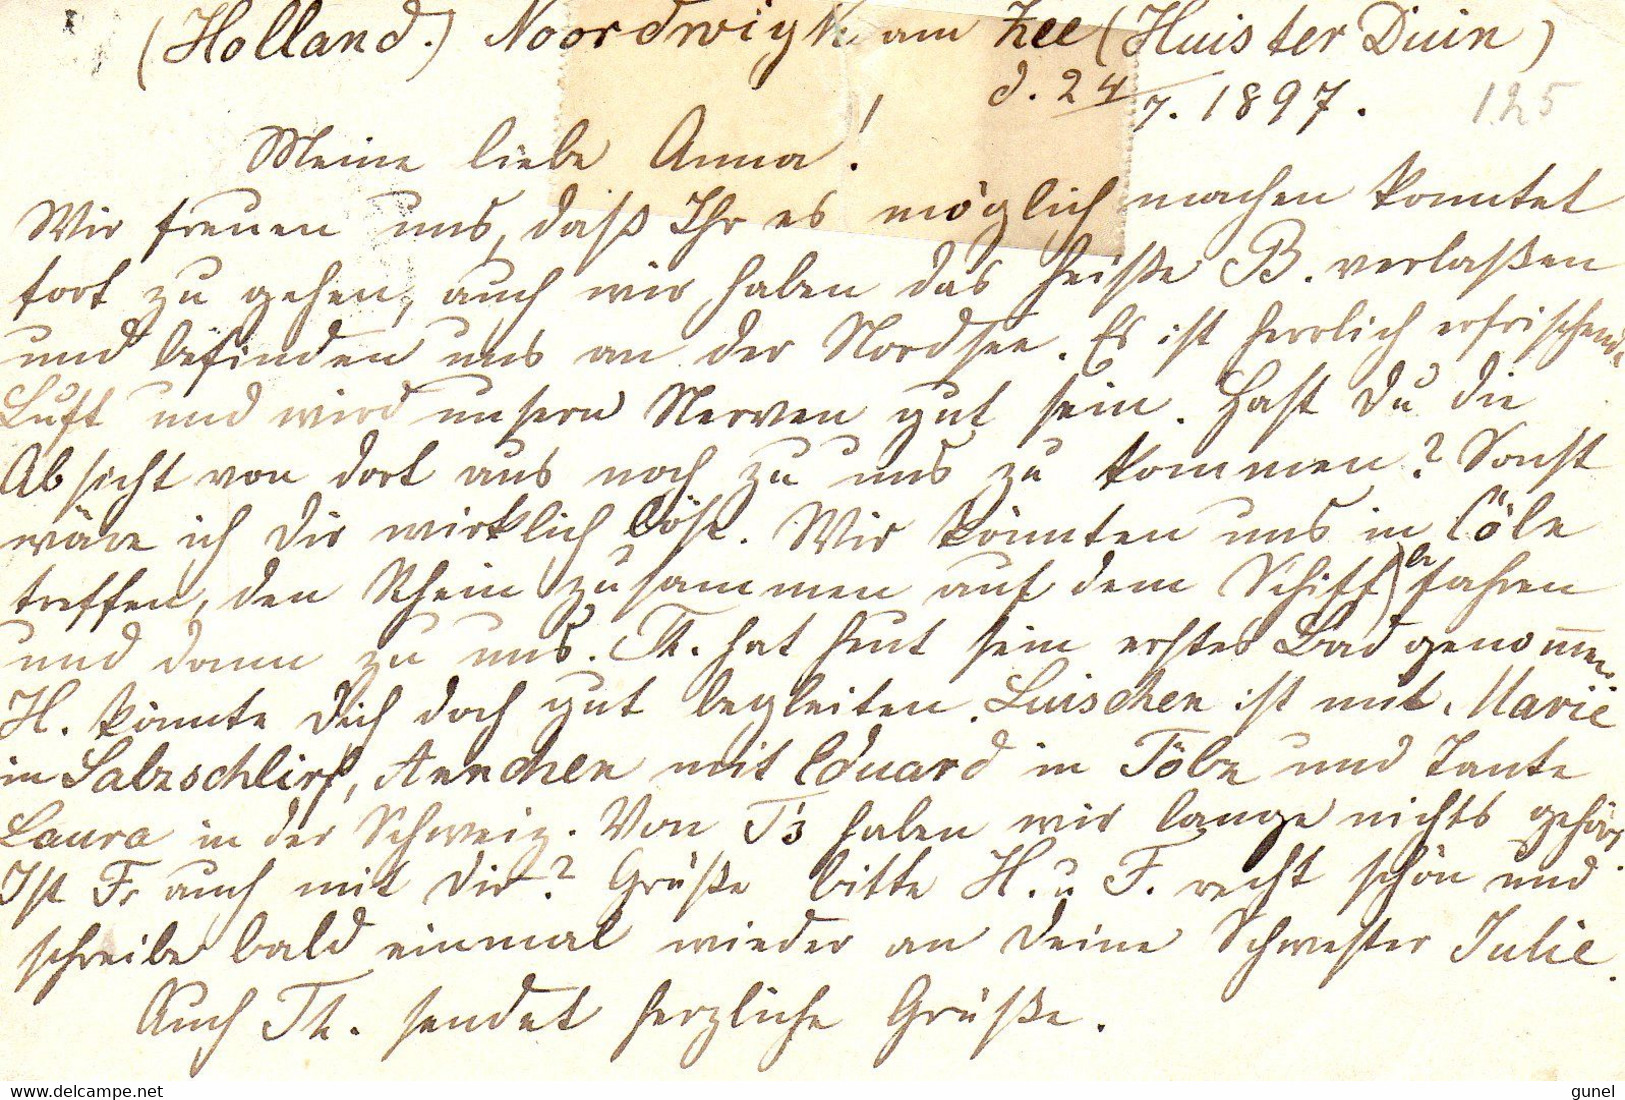 (Holland.) Noordwigk am Zee (Huis ter Duin)
d. 24/7. 1897.
125
Meine liebe Anna!
Wir freuen uns, daß Ihr es möglich machen konntet
fort zu gehen, auch wir haben das heiße B. verlaßen
und befinden uns an der Nordsee. Es ist herrlich erfrischende
Luft und wird unsern Nerven gut sein. Hast Du die
Absicht von dort aus noch zu uns zu kommen? Sonst
wäre ich Dir wirklich böse. Wir könnten uns in Cöln
treffen, den Rhein zusammen auf dem Schiff befahren
und dann zu uns. Th. hat heut sein erstes Bad genommen.
H. könnte Dich doch gut begleiten. Luischen ist mit Marie
in Salzschlirf, Annchen mit Eduard in Tölz und Tante
Laura in der Schweiz. Von T's haben wir lange nichts gehört.
Ist Fr auch mit Dir? Grüße bitte H. u F. recht schön und
schreibe bald einmal wieder an Deine Schwester Julie.
Auch Th. sendet herzliche Grüße.
https://www.delcampe.net
gunel